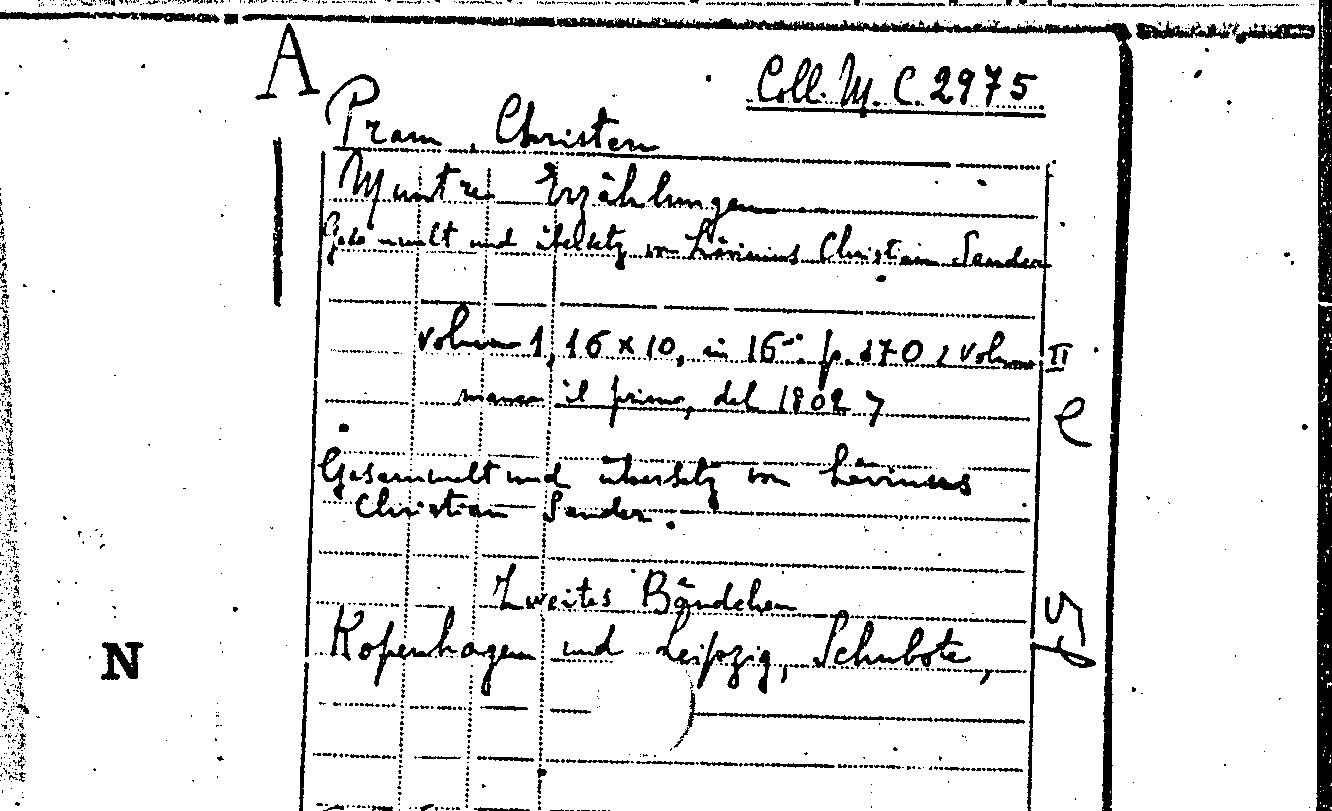 A
Coll. M. C. 2975
Pram, Christen
Muntre Erzählungen
Gesammelt und übersetz von Lävinus Christian Sander
volume 1, 16 x 10, in 16º. p. 270, volume II
manca il primo, del 1802 7
e
Gesammelt und übersetz von Lävinus
Christian Sander.
Zweites Bändchen
Kopenhagen und Leipzig, Schubote,
N